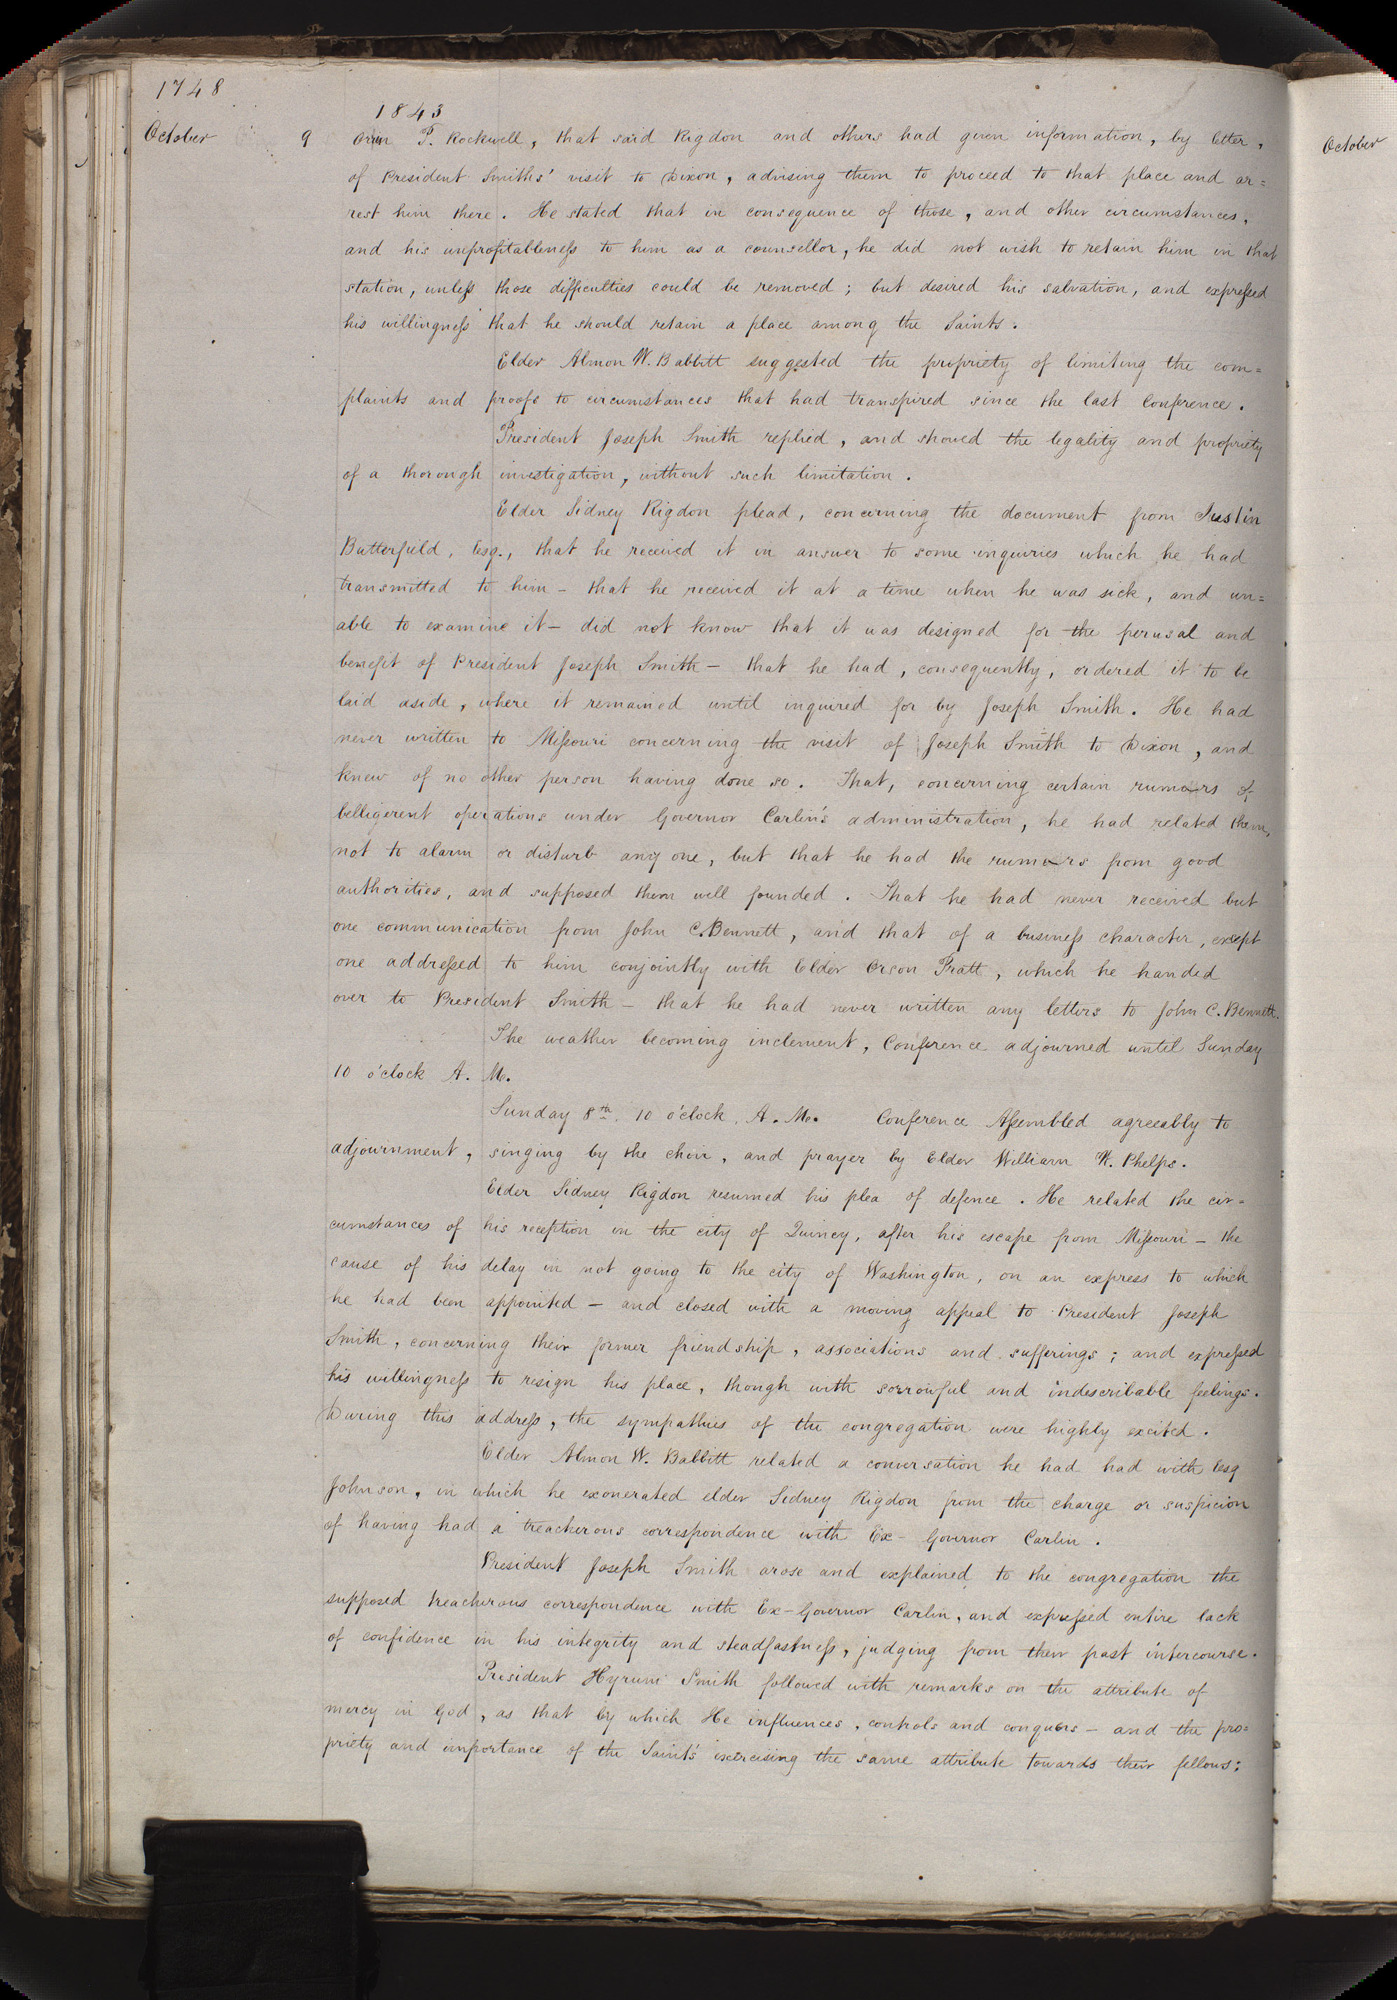 1748
1843
October 9 Orin P. Rockwell, that said Rigdon and others had given information, by letter,
of President Smiths' visit to Dixon, advising them to proceed to that place and ar=
rest him there. He stated that in consequence of those, and other circumstances,
and his unprofitableness to him as a counsellor, he did not wish to retain him in that
station, unless those difficulties could be removed; but desired his salvation, and expressed
his willingness that he should retain a place among the Saints.
Elder Almon W. Babbitt suggested the propriety of limiting the com=
plaints and proofs to circumstances that had transpired since the last Conference.
President Joseph Smith replied, and showed the legality and propriety
of a thorough investigation, without such limitation.
Elder Sidney Rigdon plead, concerning the document from Justin
Butterfield, Esq., that he received it in answer to some inquiries which he had
transmitted to him — that he received it at a time when he was sick, and un=
able to examine it — did not know that it was designed for the perusal and
benefit of President Joseph Smith — that he had, consequently, ordered it to be
laid aside, where it remained until inquired for by Joseph Smith. He had
never written to Missouri concerning the visit of Joseph Smith to Dixon, and
knew of no other person having done so. That, concerning certain rumors of
belligerent operations under Governor Carlin's administration, he had related them,
not to alarm or disturb any one, but that he had the rumors from good
authorities, and supposed them well founded. That he had never received but
one communication from John C. Bennett, and that of a business character, except
one addressed to him conjointly with Elder Orson Pratt, which he handed
over to President Smith — that he had never written any letters to John C. Bennett.
The weather becoming inclement, Conference adjourned until Sunday
10 o'clock A. M.
Sunday 8th. 10 o'clock, A. M. Conference Assembled agreeably to
adjournment, singing by the choir, and prayer by Elder William W. Phelps.
Elder Sidney Rigdon resumed his plea of defence. He related the cir=
cumstances of his reception in the city of Quincy, after his escape from Missouri — the
cause of his delay in not going to the city of Washington, on an express to which
he had been appointed — and closed with a moving appeal to President Joseph
Smith, concerning their former friendship, associations and sufferings; and expressed
his willingness to resign his place, though with sorrowful and indescribable feelings.
During this address, the sympathies of the congregation were highly excited.
Elder Almon W. Babbitt related a conversation he had had with Esq
Johnson, in which he exonerated elder Sidney Rigdon from the charge or suspicion
of having had a treacherous correspondence with Ex-Governor Carlin.
President Joseph Smith arose and explained to the congregation the
supposed treacherous correspondence with Ex-Governor Carlin, and expressed entire lack
of confidence in his integrity and steadfastness, judging from their past intercourse.
President Hyrum Smith followed with remarks on the attribute of
mercy in God, as that by which He influences, controls and conquers — and the pro=
priety and importance of the Saint's exercising the same attribute towards their fellows:
October